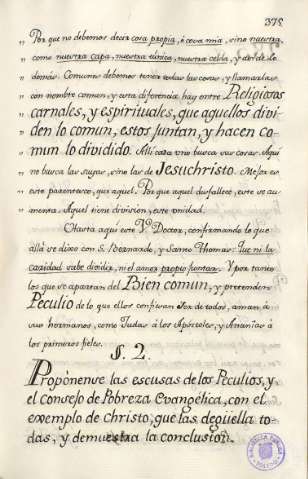 378
" Por que no debemos decir cosa propia, ó cosa mia, sino nuestra,
" como nuestra capa, nuestra túnica, nuestra celda, y asi de lo
" demás. Comunes debemos tener todas las cosas, y llamarlas
" con nombre comun, y esta diferencia hay entre Religiosos
" carnales, y espirituales, que aquellos divi-
" den lo comun, estos juntan, y hacen co-
" mun lo dividido. Alli cada uno busca sus cosas. Aqui
" no busca las suyas, sino las de Jesuchristo. Mejor es
" este parentesco, que aquel. Por que aquel desfallece, este se au-
" menta. Aquel tiene division, este unidad.
Hasta aqui este Vᵉ Doctor, confirmando lo que
allá se dixo con S. Bernardo, y Santo Thomas: que ni la
caridad sabe dividir, ni el amor propio juntar. Y por tanto
los que se apartan del Bien comun, y pretenden
Peculio de lo que ellos confiesan ser de todos, aman á
sus hermanos, como Judas á los Apóstoles, y Ananias á
los primeros fieles.
§. 2.
Propónense las escusas de los Peculios, y
el consejo de Pobreza Evangélica, con el
exemplo de Christo, que las degüella to-
das, y demuestra la conclusion.